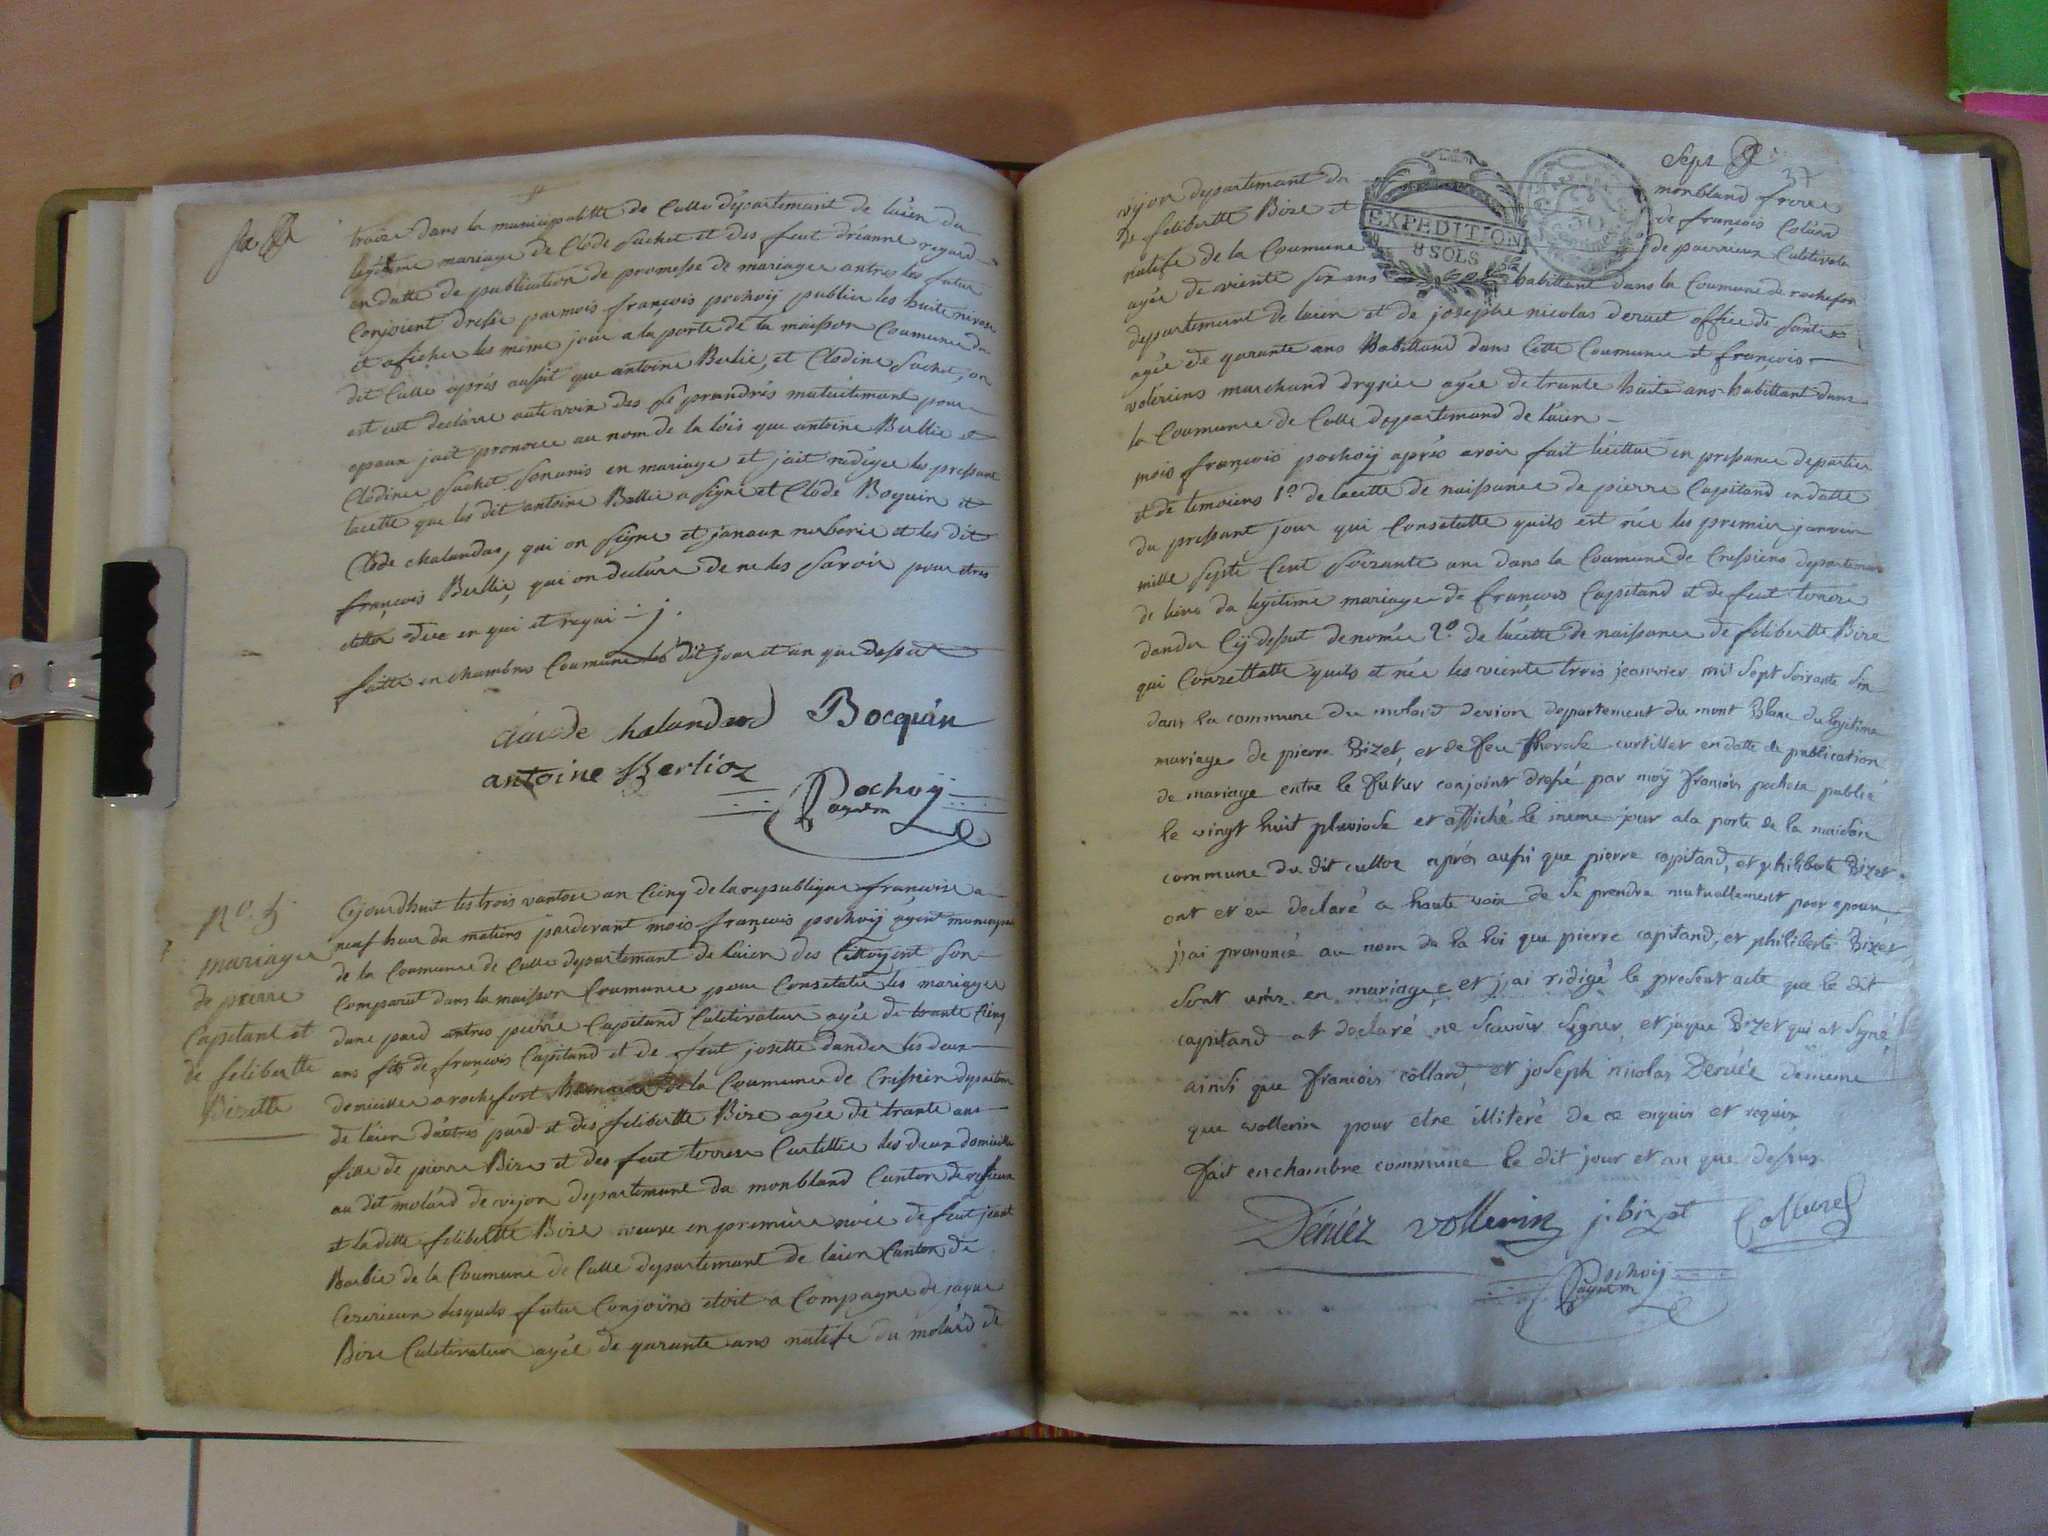 troize dans la municipalitté de Culle département de laien du
legitime mariage de Clode Suchet et des feut dréanne regard
en datte de publication de promesse de mariage antres les futur
Conjoient dressé parmois françois pochoÿ publier les huite nivose
et aficher les même jour a la porte de la maisson Coumune du
dit Culle aprés aussit que antoine Berlié, et Clodine Suchet, on
est eut declare aute voix des se prandrés mutuitemant pour
epoux jait pronoce au nom de la lois que antoine Bellie et
Clodine Suchet sonunis en mariage et jait rediger les pressant
lacette que les dit antoine Bellie a signé et Clode Boquin et
Clode chalandas, qui on signe et janaux et les dit
françois Bellié, qui on declare de ne les savoir pour etres
de ce en qui et requi
faitte en chambre Coumune les dit jour et an que dessus
claude chalandard Bocquin
antoine Berlioz
Pochoÿ
agent m
N.o 5
mariage
de pierre
Capitant et
de feliberthe
Bizette
Cejourdhuit les trois vantose an Cinq de la republique françoise a
neuf heur du matiens pardevant mois françois pochoÿ agent municipal
de la Coumune de Culle departemant de laien des Cittoÿent son
Comparut dans la maisson Coumune pour Constatter les mariages
dune pard antres pierre Capitand Cultivateur agée de trante Cinq
ans fils de françois Capitand et de feut josette dander les deux
domicilles a rochefort de la Coumune de Cressien departem
de laien dautres pard et des felibertte Bize agée de trante ans
fille de pierre Bize et des feut terrese Curtillie les deux domicille
au dit molard de vijon departemant du monbland Canton de
et laditte felibertte Bize veuve en premiere noce de feut jeant
Barbie de la Coumune de Culle departemant de laien Canton de
Cezerieux lesquels futur Conjoins etoit a Compagne de jaque
Bize Cultivateur agée de garante ans natife du molard de
Sept
37
vijon departemant du monbland frere
de felibertte Bize et de françois Colard
natife de la Coumune de parrieux Cultivate
EXPEDITION
8 SOLS
50
agée de viente six ans habittant dans la Coumune de rochefor
departement de laien et de josephe nicolas deruet office de Santee
agée de garante ans habittand dans Cette Coumune et françois
volerins marchand agée de trante huite ans habittant dans
la Coumune de Culle departemand de laien
mois françois pochoÿ aprés avoir fait lecttur en pressance departie
et de temoins 1.o de lacette de naissance de pierre Capitand en datte
du pressant jour qui Constatte quils est née les premier janvier
mille septe Cent soizante une dans la Coumune de Cressiens departemen
de laien du legitime mariage de françois Capitand et de feut
dander Cÿ dessut denomée 2.o de lacette de naissance de felibertte Bize
qui Conzettatte quils et née les viente trois jeanvier mil sept soixante sin
dans la commune du molard devion departement du mont blanc du legitime
mariage de pierre Bizet, et de feu therese curtillet en datte de publication
de mariage entre le futur conjoint dressé par moÿ francois pochoix publié
le vingt huit pluviose et affiché le meme jour a la porte de la maison
commune du dit culloz aprés aussi que pierre capitand, et philiberte Bizet
ont et eu declaré a haute voix de se prendre mutuellement pour epoux,
j'jai prononcé au nom de la loi que pierre capitand, et philiberte Bizet
sont unis en mariage et j'jai ridigé le present acte que le dit
capitand at declaré ne scavoir signer, et jaque Bizet qui at signé,
ainsi que francois collard, et joseph nicolas Deruéz dememe
que vollerin pour etre illiteré de ce enquis et requis,
fait en chambre commune le dit jour et an que dessus
Deruéz vollerin j. bizet Collard
Pochoÿ
agent m